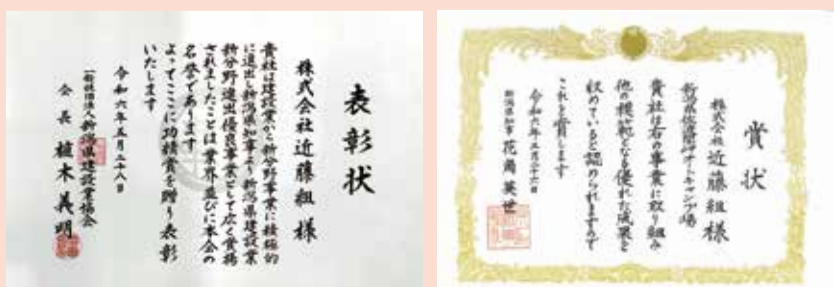 表彰状
株式会社近藤組様
貴社は建設業から新分野事業に積極的
に進出し新潟県知事より新潟県建設業
新分野進出優良事業として広く賞揚
されましたことは業界並びに本会の
名誉であります
よってここに功績賞を贈り表彰
いたします
令和六年五月二十八日
一般社団法人新潟県建設業協会
会長 植木義明
賞状
株式会社近藤組様
貴社は右の事業に取り組み
他の模範となる優れた成果を
収めていると認められますので
これを賞します
新潟県知事 花角英世